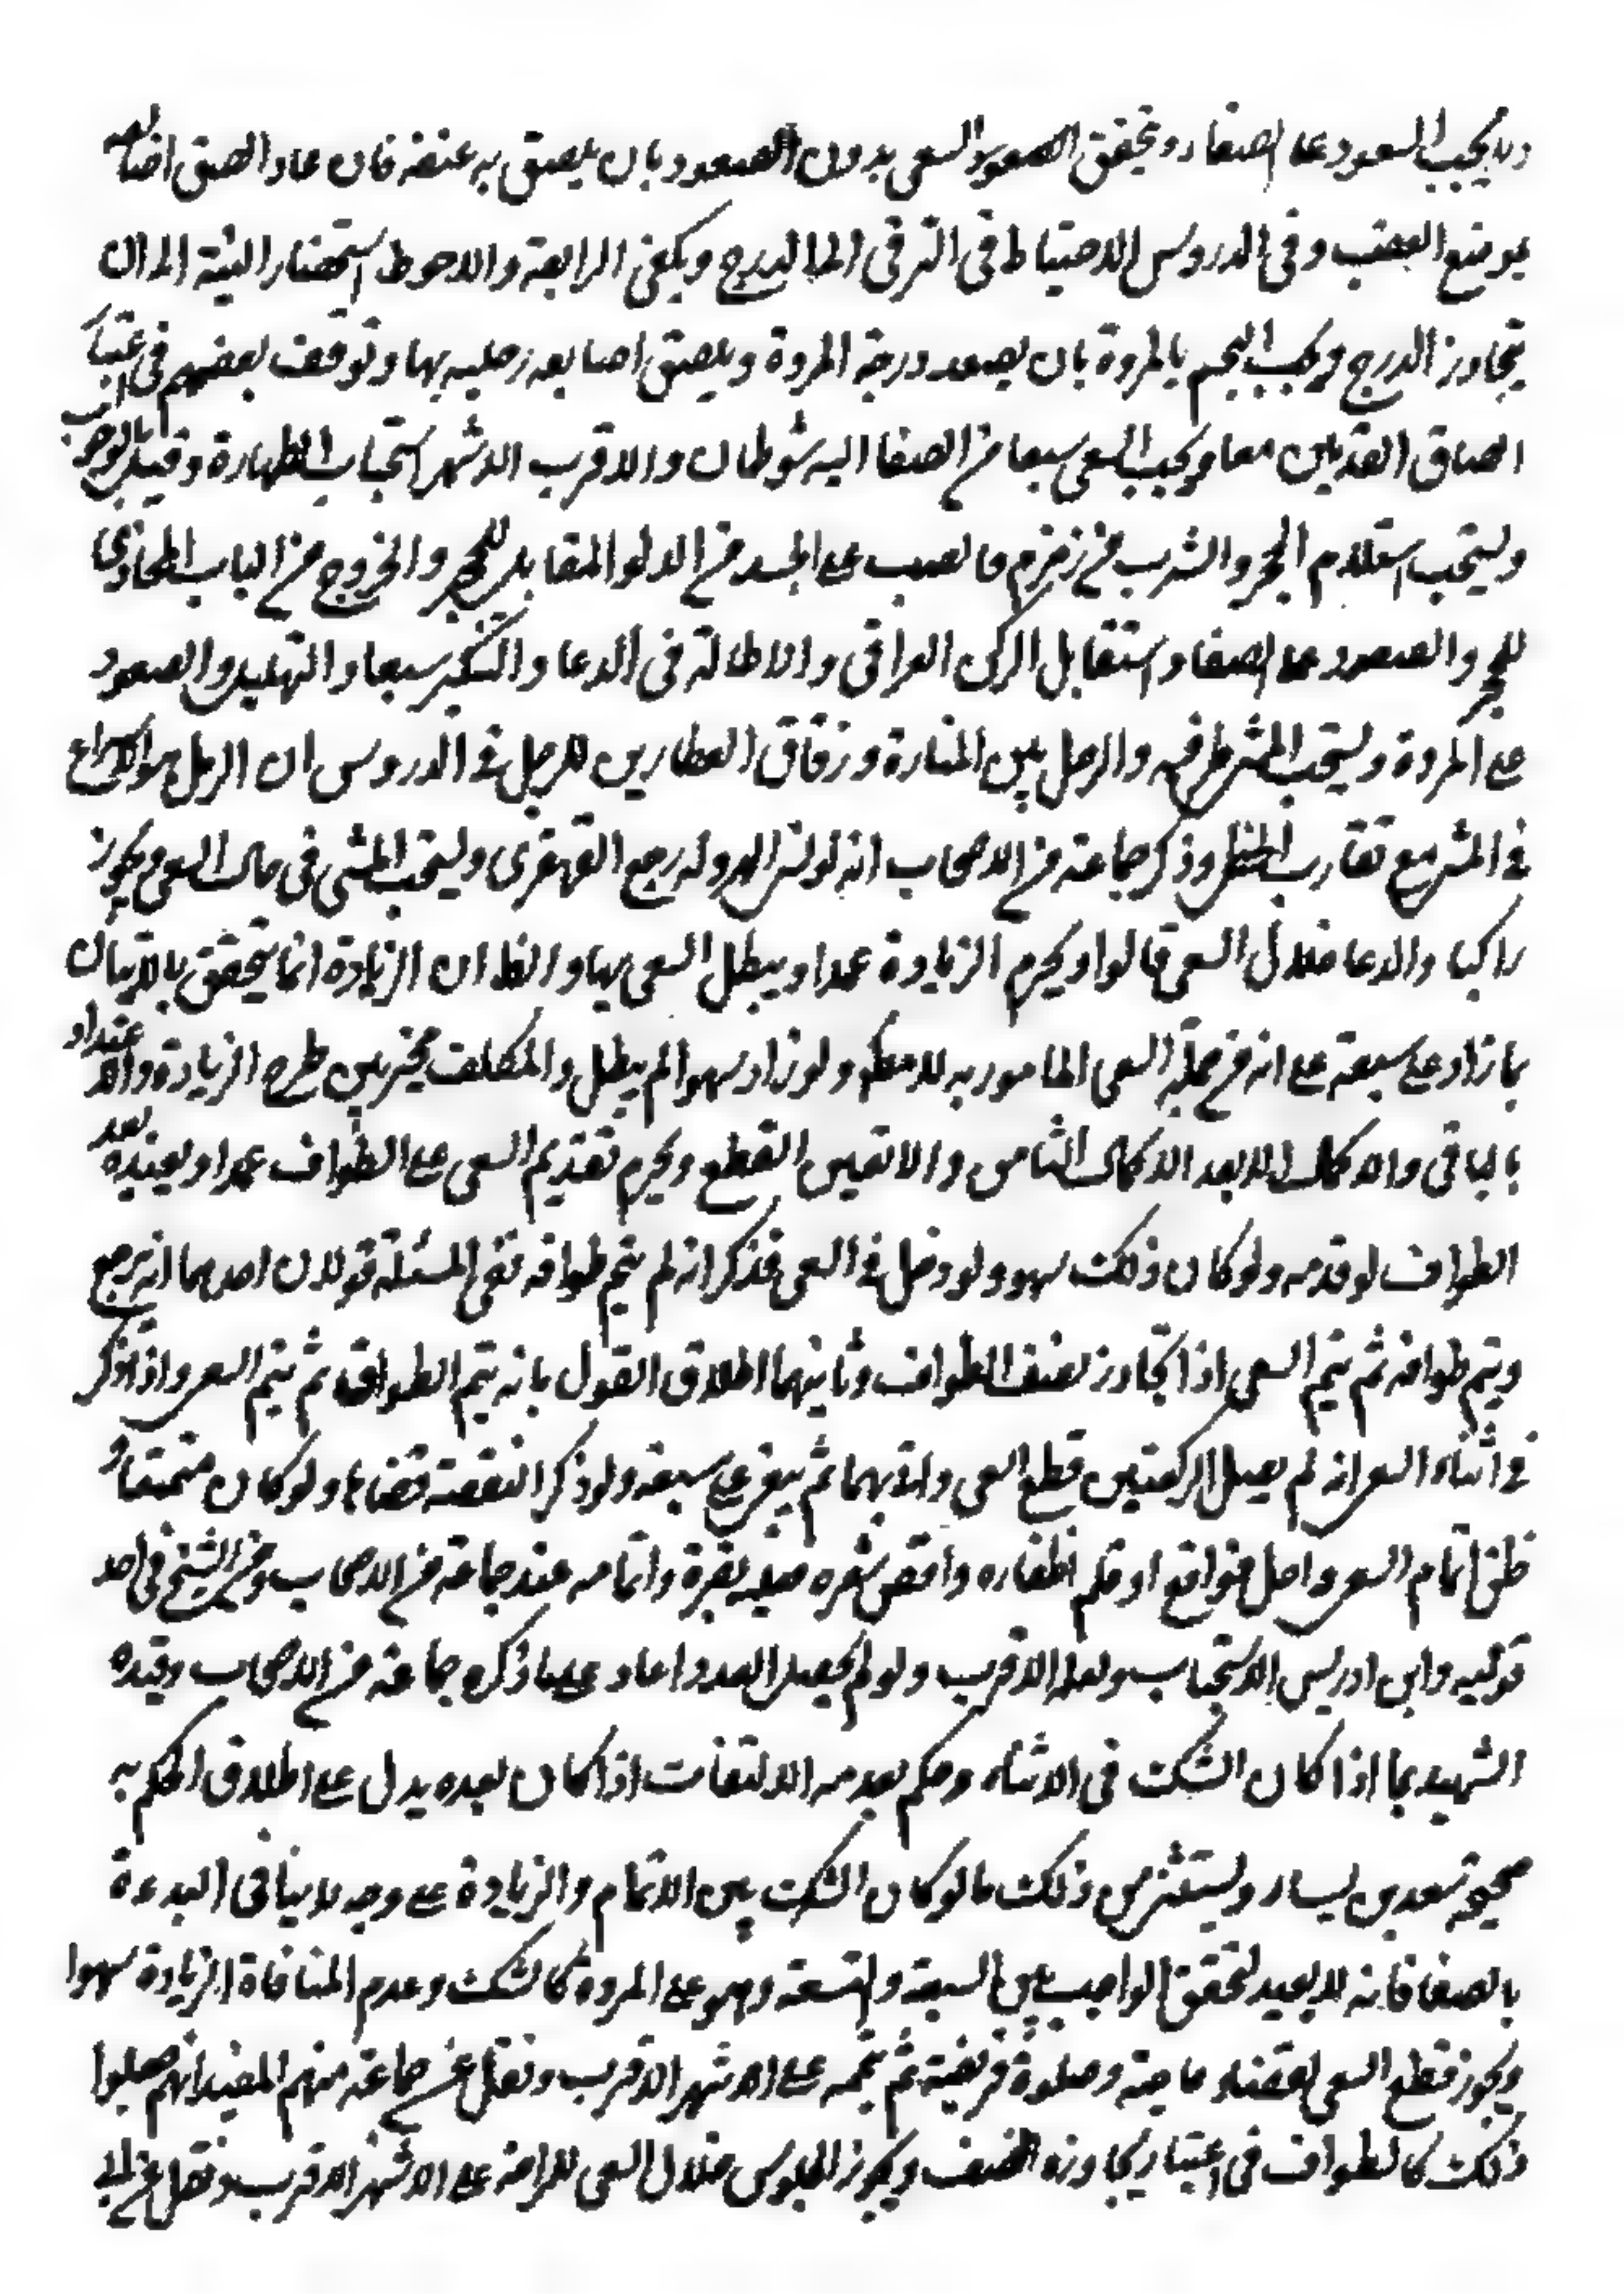 ولا يجب الصعود على الصفا و تحقق السعى بدون الصعود بان يلصق به عقبه فان عاد الصق اصابعه
بموضع العقب وفى الدروس الاحتياط فى الترقى الى الدرج ويكفى الرابعة والاحوط استحضار النية الى ان
يتجاوز الدرج ويجب الختم بالمروة بان يصعد درجة المروة ويلصق اصابع رجليه بها وتوقف بعضهم فى اعتبار
الصاق القدمين معا ويجب السعى سبعا من الصفا اليه شوطان والاقرب الاشهر استحباب الطهارة وقيل بالوجوب
ويستحب استلام الحجر والشرب من زمزم والصب على الجسد من الدلو المقابل للحجر والخروج من الباب المحاذى
للحجر والصعود على الصفا واستقبال الركن العراقى والاطالة فى الدعا والتكبير سبعا والتهليل والصعود
على المروة ويستحب المشى طرفيه والرمل بين المنارة وزقاق العطارين للرجل فى الدروس ان الرمل هو الاسراع
فى المشى مع تقارب الخطى وذكر جماعة من الاصحاب انه لو نسى الهرولة رجع القهقرى ويستحب المشى فى حال السعى ويجوز
راكبا والدعا خلال السعى قالوا ويحرم الزيادة عمدا ويبطل السعى بها والظ ان الزيادة انما يتحقق بالاتيان
بما زاد على سبعة على انه من جملة السعى المامور به ولو زاد سهوا لم يبطل والمكلف مخير بين طرح الزيادة والاعتداد
بالباقى والاكمال لا بعد الاكمال الثامن والا تعين القطع ويحرم تقديم السعى على الطواف عمدا ويعيده بعد
الطواف لو قدمه ولو كان ذلك سهو ولو دخل فى السعى فذكر انه لم يتم طوافه ففى المسئلة قولان احدهما انه يرجع
ويتم طوافه ثم يتم السعى اذا تجاوز نصف الطواف وثانيهما اطلاق القول بانه يتم الطواف ثم يتم السعى واذا ذكر
فى اثناء السعى انه لم يصل الركعتين قطع السعى واتى بهما ثم سبعة ولو ذكر النقصة قضاها ولو كان متمتعا و
ظن اتمام السعى واحل فواقع او قلم اظفاره واقص شعره فعليه بقرة واتمامه عند جماعة من الاصحاب وعن الشيخ فى احد
قوليه وابن ادريس الاستحباب ولعله الاقرب ولو لم يحصل العدد اعاد على ما ذكره جماعة من الاصحاب وقيده
الشهيد بما اذا كان الشك فى الاثناء وحكم بعدمه الالتفات اذا كان بعده يدل على اطلاق الحكم به
صحيحة سعد بن يسار ويستثنى من ذلك ما لو كان الشك بين الاتمام والزيادة على وجه لا ينافى البدءة
بالصفا فانه لا يعيد لتحقق الواجب بين السبعة والتسعة وهو على المروة كالشك وعدم المنافاة الزيادة سهوا
ويجوز قطع السعى لقضاء حاجة وصلوة فريضة ثم يتمه على الاشهر الاقرب ونقل عن جماعة منهم المفيد انهم جعلوا
ذلك كالطواف فى اعتبار مجاوزة النصف ويجوز الجلوس خلال السعى للراحة على الاشهر الاقرب ونقل عن